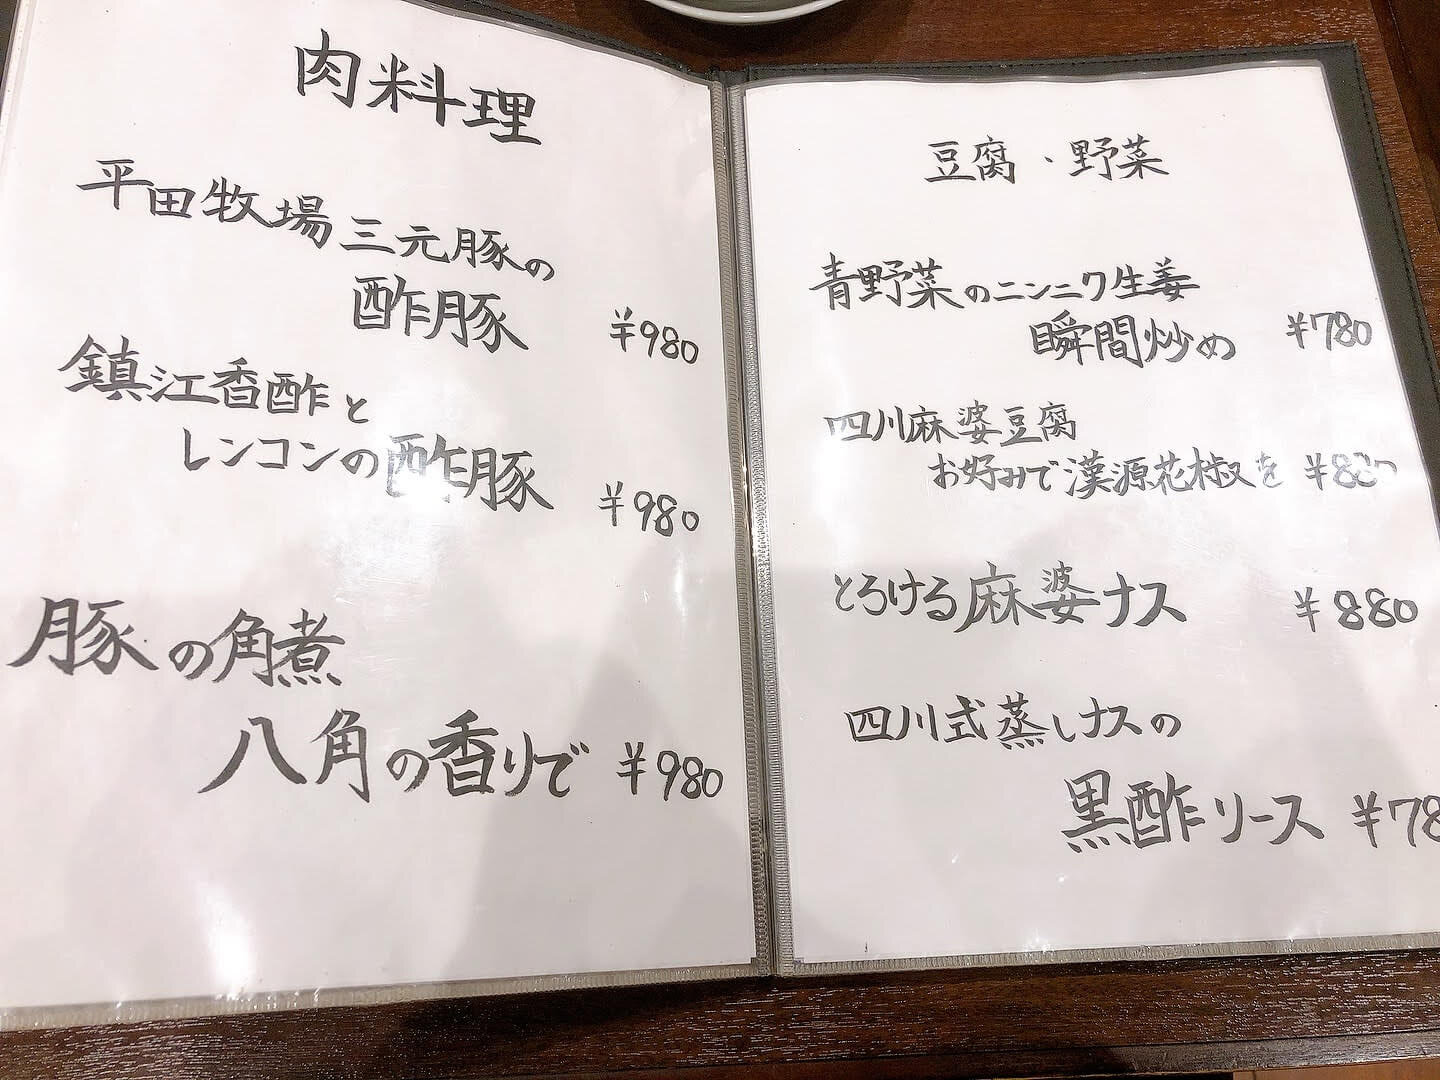 肉料理
平田牧場三元豚の
酢豚 ¥980
鎮江香酢と
レンコンの酢豚 ¥980
豚の角煮
八角の香りで ¥980
豆腐、野菜
青野菜のニンニク生姜
瞬間炒め ¥780
四川麻婆豆腐
お好みで漢源花椒を
とろける麻婆ナス ¥880
四川式蒸しナスの
黒酢リース